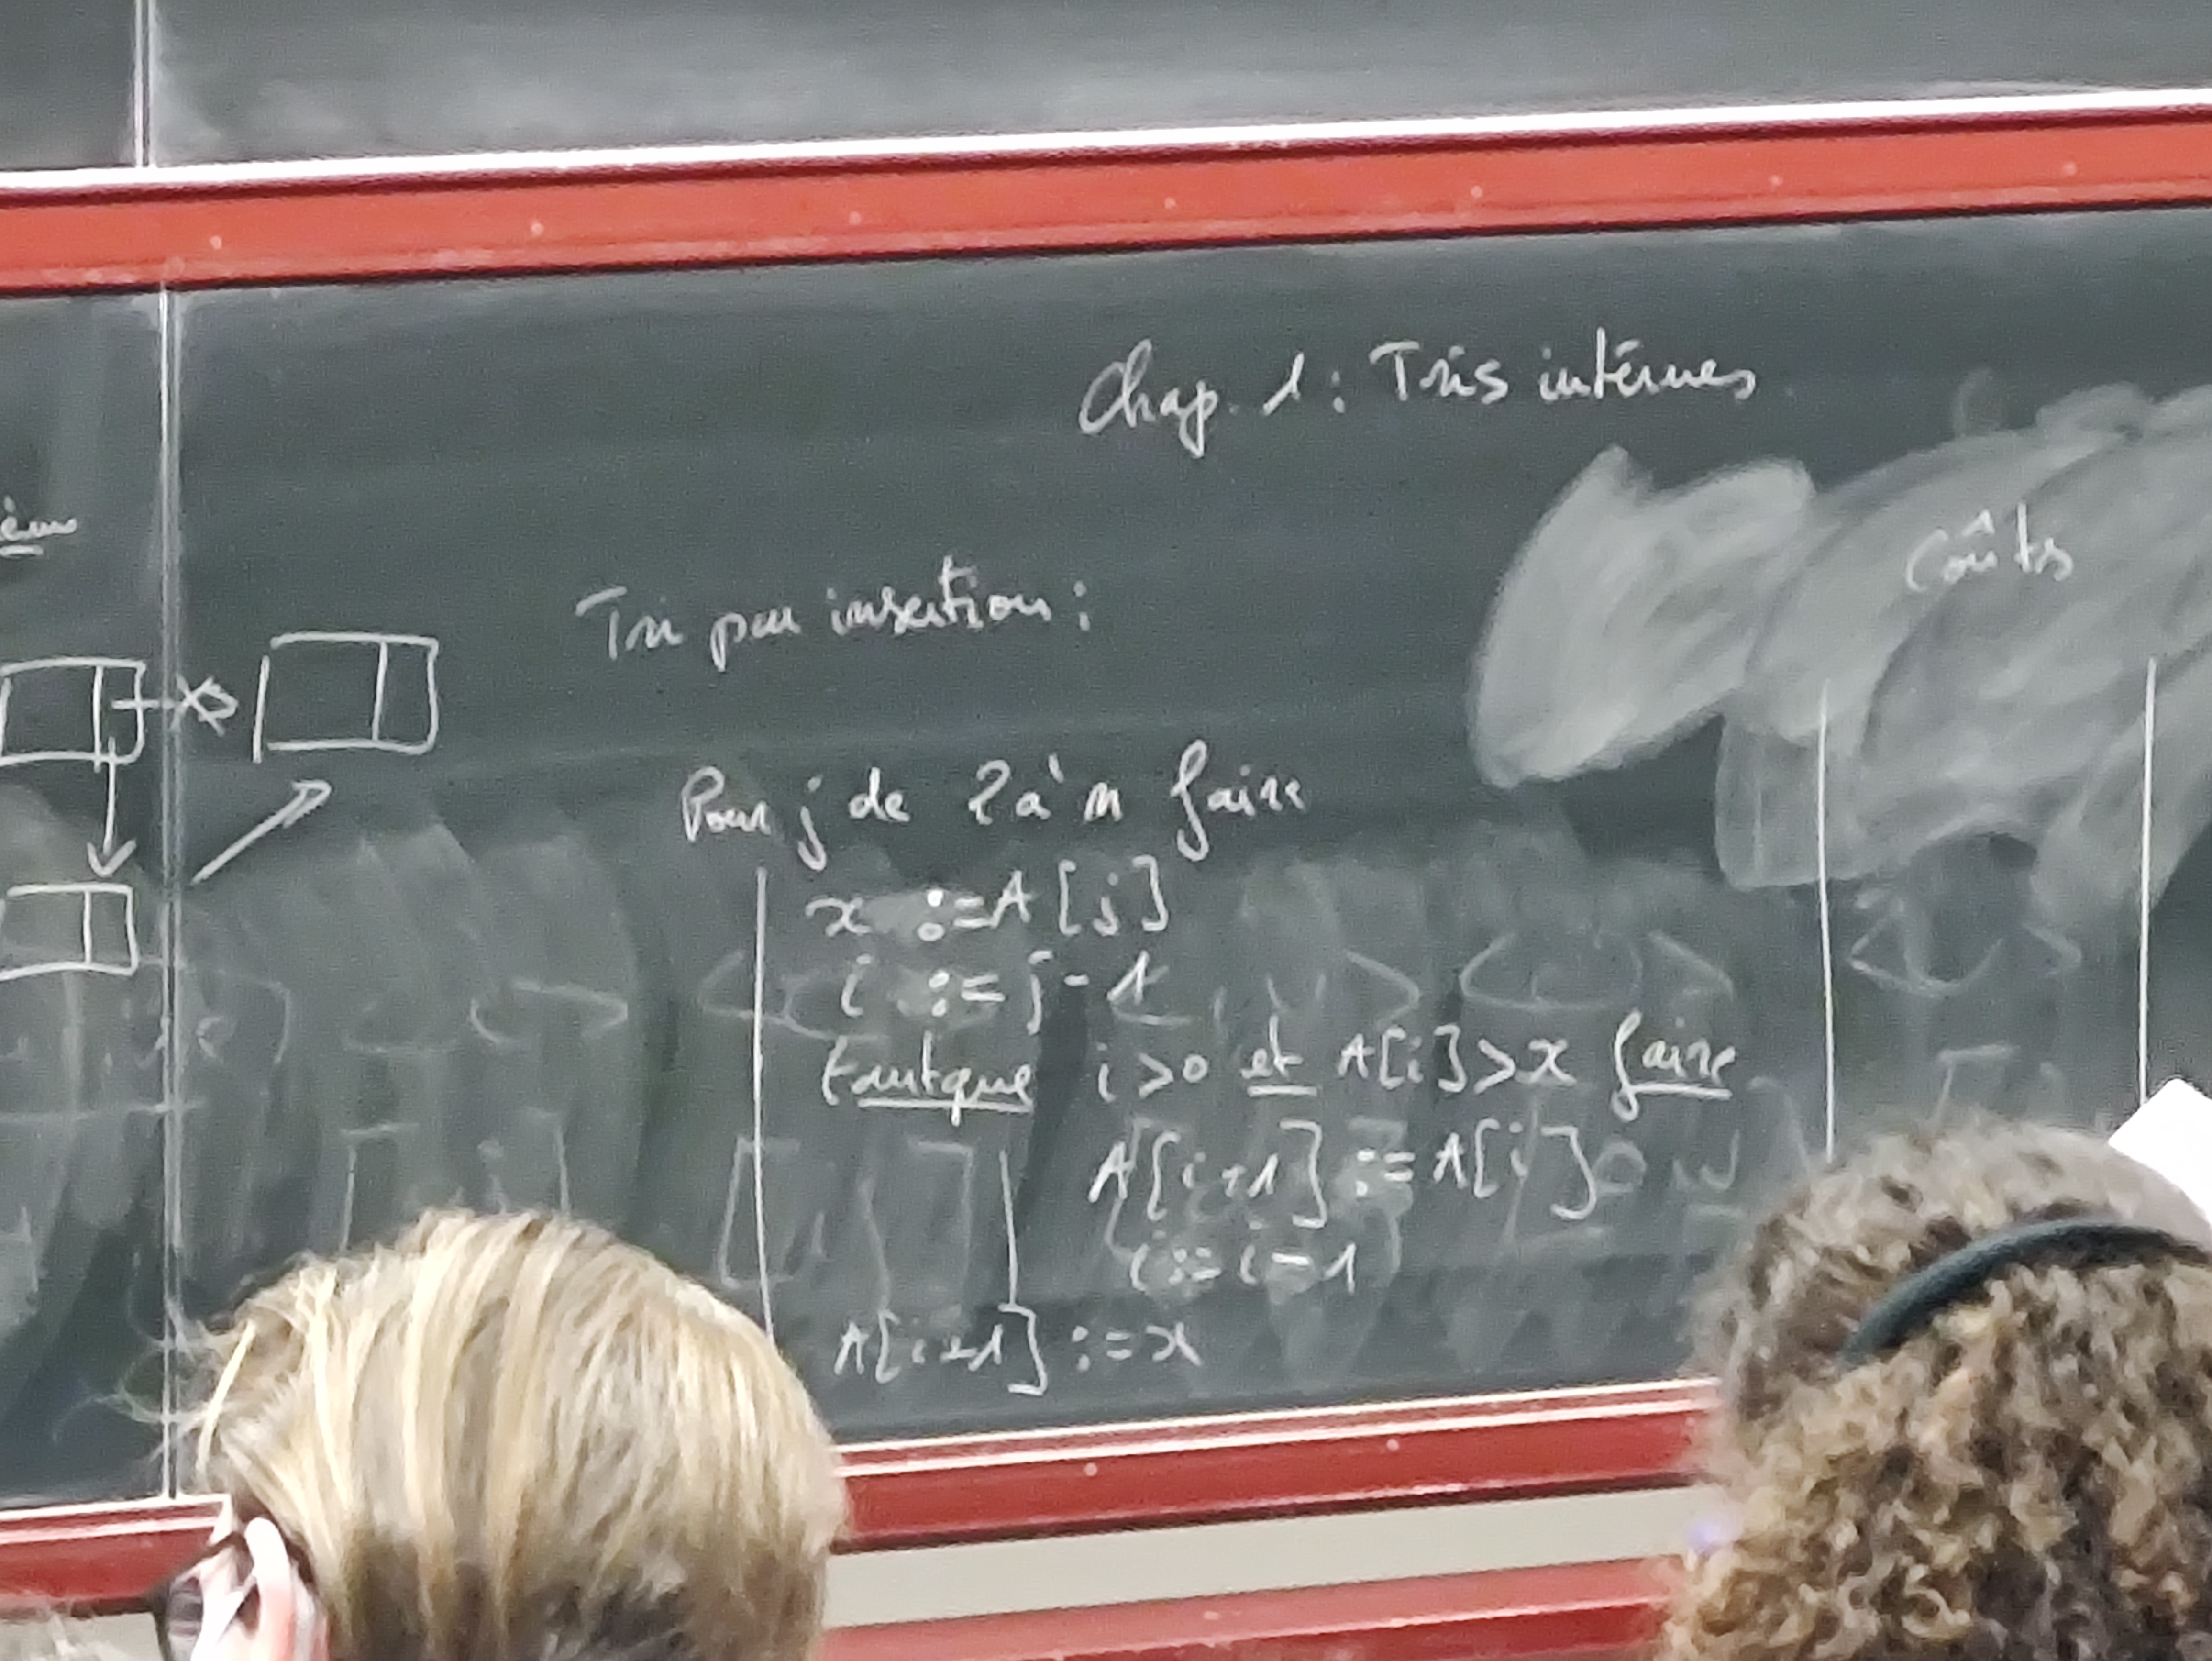 Chap. 1 : Tris internes
Coûts
Tri par insertion :
Pour j de 2 à n faire
x := A[j]
i := j - 1
tantque i > 0 et A[i] > x faire
A[i+1] := A[i]
i := i - 1
A[i+1] := x